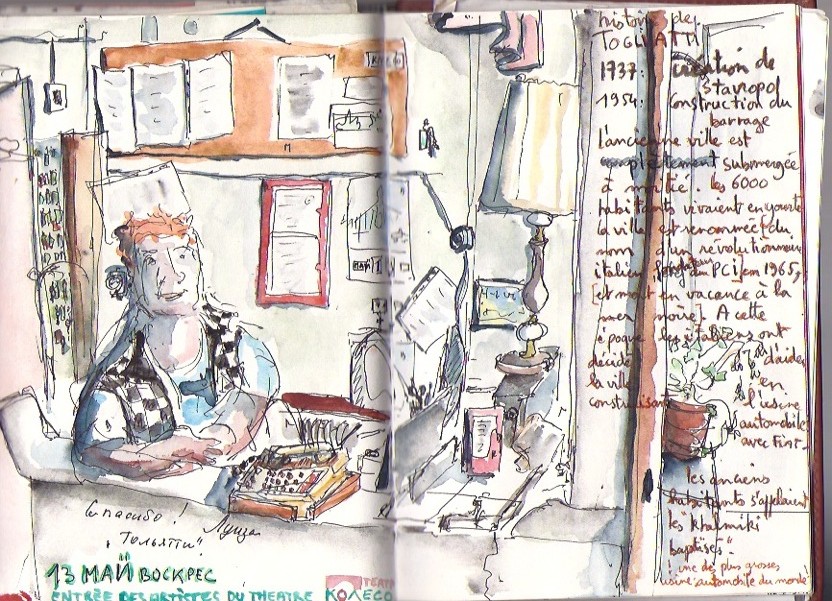 Спасибо!
Луиза
"Тольятти"
13 МАЙ ВОСКРЕС
ENTRÉE DES ARTISTES DU THEATRE
ТЕАТР
КОЛЕСО
histoire de
TOGLIATTI
1737: création de
Stavropol
1954: construction du
barrage
l'ancienne ville est
complètement submergée
à moitié. les 6000
habitants vivaient en yourte
la ville est renommée du
nom d'un révolutionnaire
italien du PCI en 1965,
[et mort en vacance à la
mer noire]. A cette
époque les italiens ont
décidé d'aider
la ville en
construisant l'usine
automobile
avec Fiat.
les anciens
habitants s'appelaient
les "khalmiki
baptisés"
! une des plus grosses
usine automobile du monde